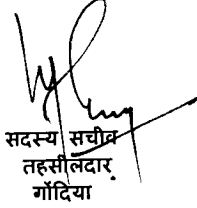 सदस्य सचीव
तहसीलदार
गोंदिया